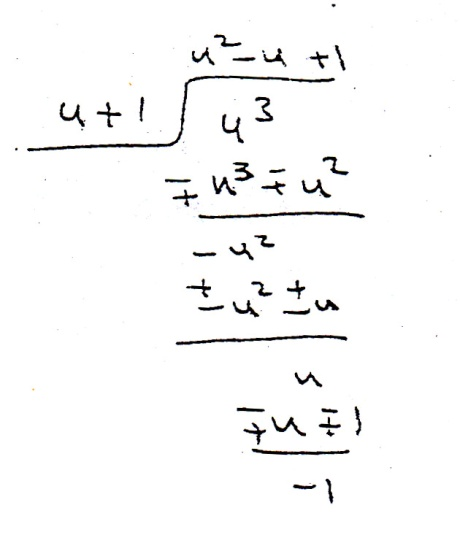 u² - u + 1
u + 1
u³
∓ u³ ∓ u²
- u²
± u² ± u
u
∓ u ∓ 1
- 1